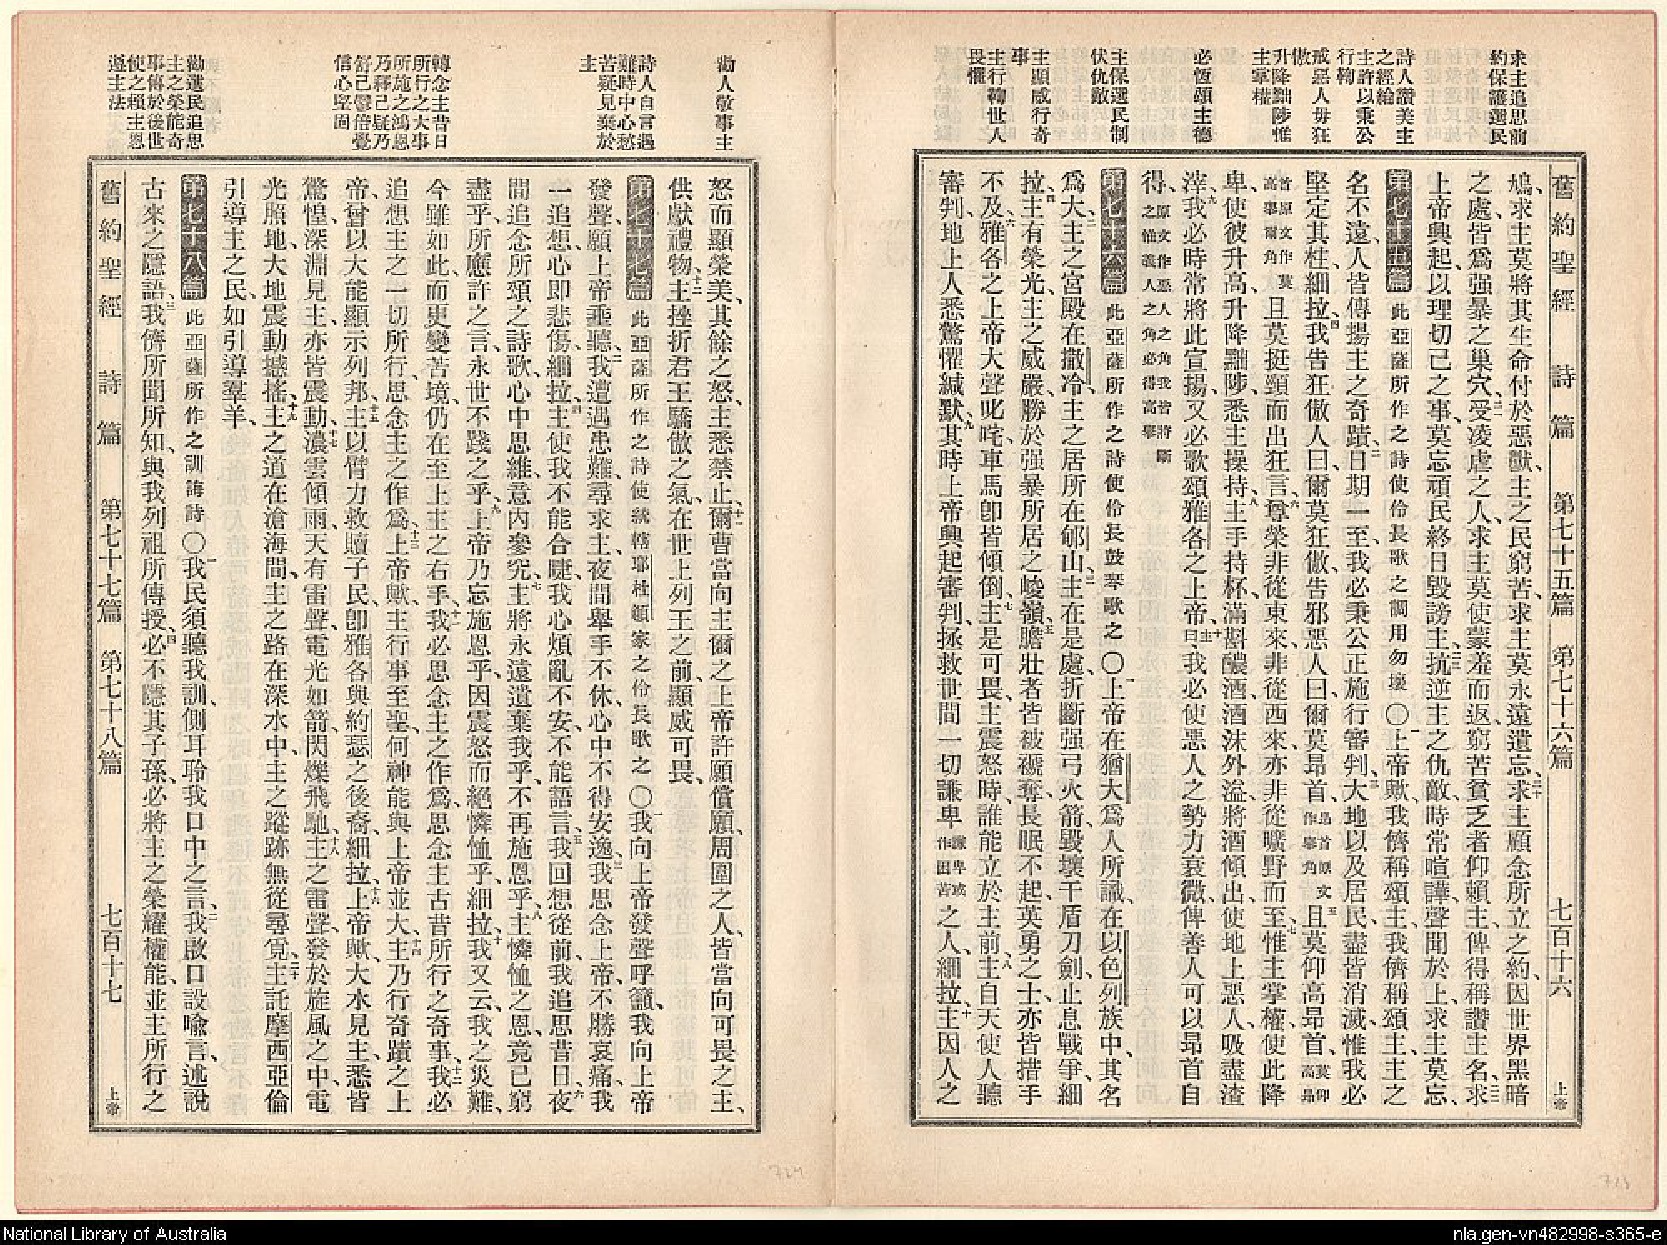 求主追思前
約保護選民
詩人讚美主
之經綸
主許以秉公
行鞫
戒惡人毋狂
傲
升降黜陟惟
主掌權
必恆頌主德
主保選民制
伏仇敵
主顯威行奇
事
主行鞫世人
畏懼
舊約聖經 詩篇 第七十五篇 第七十六篇 七百十六 上帝
鳩、求主莫將其生命付於惡獸、主之民窮苦、求主莫永遠遺忘、二十求主顧念所立之約、因世界黑暗
之處、皆爲强暴之巢穴、二一受凌虐之人、求主莫使蒙羞而返、窮苦貧乏者仰賴主、俾得稱讚主名、二二求
上帝興起、以理切己之事、莫忘頑民終日毀謗主、二三抗逆主之仇敵、時常喧譁、聲聞於上、求主莫忘、
第七十五篇 此亞薩所作之詩使伶長歌之調用勿壞〇一上帝歟、我儕稱頌主、我儕稱頌主、主之
名不遠、人皆傳揚主之奇蹟、二日期一至、我必秉公正施行審判、三大地以及居民盡皆消滅、惟我必
堅定其柱、細拉、四我告狂傲人曰、爾莫狂傲、告邪惡人曰、爾莫昂首、昂首原文作舉角五且莫仰高昂首、莫仰高昂
首原文作莫高舉爾角且莫挺頸而出狂言、六尊榮非從東來、非從西來、亦非從曠野而至、七惟主掌權、使此降
卑、使彼升高、升降黜陟、悉主操持、八主手持杯、滿斟醲酒、酒沫外溢、將酒傾出、使地上惡人、吸盡渣
滓、九我必時常將此宣揚、又必歌頌雅各之上帝、十主曰、我必使惡人之勢力衰微、俾善人可以昂首自
得、原文作惡人之角我皆將斷之惟義人之角必得高舉
第七十六篇 此亞薩所作之詩使伶長鼓琴歌之〇一上帝在猶大爲人所識、在以色列族中、其名
爲大、二主之宮殿在撒冷、主之居所在郇山、三主在是處、折斷强弓火箭、毀壞干盾刀劍、止息戰爭、細
拉、四主有榮光、主之威嚴、勝於强暴所居之峻嶺、五膽壯者皆被褫奪、長眠不起、英勇之士、亦皆措手
不及、六雅各之上帝、大聲叱咤、車馬卽皆傾倒、七主是可畏、主震怒時、誰能立於主前、八主自天使人聽
審判、地上人悉驚懼緘默、九其時上帝興起審判、拯救世間一切謙卑謙卑或作困苦之人、細拉、十主因人之
勸人敬事主
詩人自言遇
難時中心愁
苦疑見棄於
主
轉念主昔日
所行之大事
所施之鴻恩
乃釋己疑乃
詧己鬱倍覺
信心堅固
勸選民追思
主之榮能奇
事傳於後世
使之賴主恩
遵主法
怒而顯榮美、其餘之怒、主悉禁止、十一爾曹當向主爾之上帝許願償願、周圍之人、皆當向可畏之主、
供獻禮物、十二主挫折君王驕傲之氣、在世上列王之前、顯威可畏、
第七十七篇 此亞薩所作之詩使統轄耶杜頓家之伶長歌之〇一我向上帝發聲呼籲、我向上帝
發聲、願上帝垂聽、二我遭遇患難、尋求主、夜間舉手不休、心中不得安逸、三我思念上帝、不勝哀痛、我
一追想、心即悲傷、細拉、四主使我不能合睫、我心煩亂不安、不能語言、五我回想從前、我追思昔日、六夜
間追念所頌之詩歌、心中思維、意內參究、七主將永遠遺棄我乎、不再施恩乎、八主憐恤之恩、竟已窮
盡乎、所應許之言、永世不踐之乎、九上帝乃忘施恩乎、因震怒而絕憐恤乎、細拉、十我又云、我之災難、
今雖如此、而更變苦境、仍在至上主之右手、十一我必思念主之作爲、思念主古昔所行之奇事、十二我必
追想主之一切所行、思念主之作爲、十三上帝歟、主行事至聖、何神能與上帝並大、十四主乃行奇蹟之上
帝、曾以大能顯示列邦、十五主以臂力救贖子民、卽雅各與約瑟之後裔、細拉、十六上帝歟、大水見主、悉皆
驚惶、深淵見主、亦皆震動、十七濃雲傾雨、天有雷聲、電光如箭、閃爍飛馳、十八主之雷聲、發於旋風之中、電
光照地、大地震動撼搖、十九主之道在滄海間、主之路在深水中、主之蹤跡、無從尋覓、二十主託摩西亞倫
引導主之民、如引導羣羊、
第七十八篇 此亞薩所作之訓誨詩〇一我民須聽我訓、側耳聆我口中之言、二我啟口設喻言、述說
古來之隱語、三我儕所聞所知、與我列祖所傳授、四必不隱其子孫、必將主之榮耀權能、並主所行之
舊約聖經 詩篇 第七十七篇 第七十八篇 七百十七 上帝
724
723
National Library of Australia
nla.gen-vn482998-s365-e